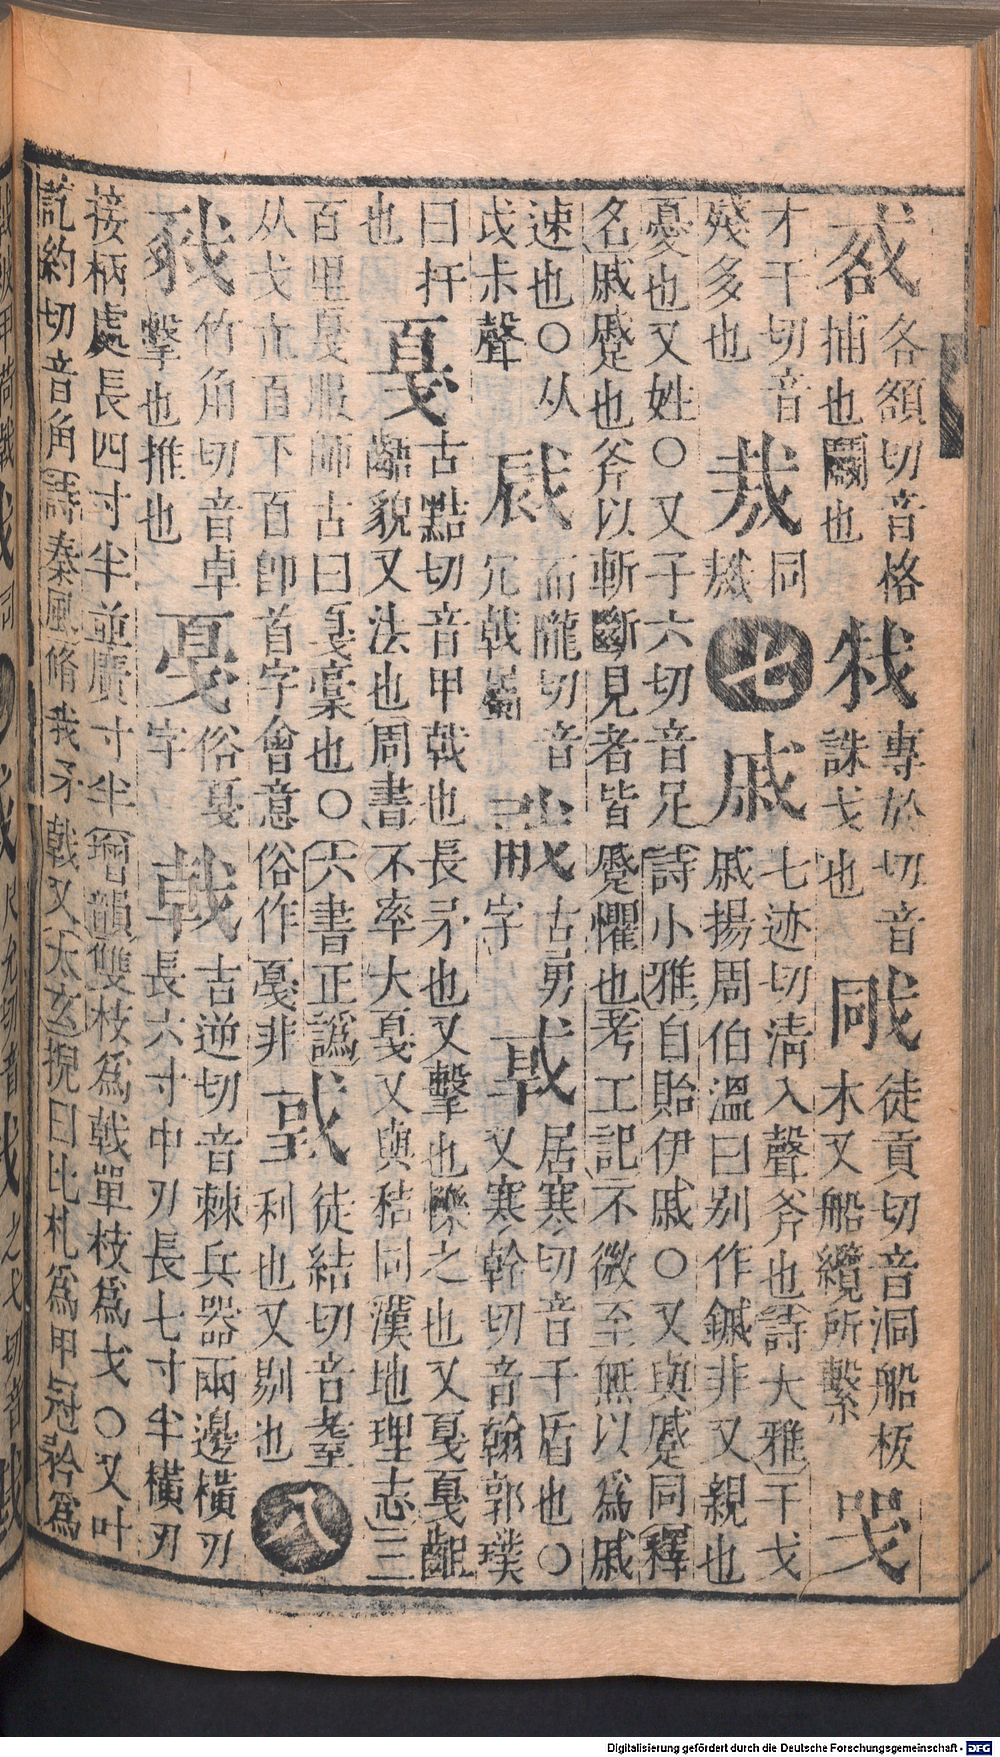 𢧄各額切音格捕也鬬也㦵專於切音誅戈也戙徒貢切音洞船板木又船纜所繫𢦏
才干切音殘多也烖同烖七戚七迹切清入聲斧也詩大雅干戈戚揚周伯溫曰别作鏚非又親也
憂也又姓○又子六切音足詩小雅自貽伊戚○又與蹙同釋
名戚蹙也斧以斬斷見者皆蹙懼也考工記不微至無以為戚
速也○从戉尗聲㦷而隴切音冗戟屬𢧳古勇字𢧀居寒切音干盾也○又寒幹切音翰郭璞
曰扞也戛古黠切音甲戟也長矛也又擊也轢之也又戛戛齟齬貌又法也周書不率大戛又與秸同漢地理志三
百里戛服師古曰戛稾也○六書正譌从戈从𦣻下𦣻卽首字會意俗作戞非𢧜徒結切音耋利也又剔也八
㧻竹角切音卓擊也推也戞俗戛字戟吉逆切音棘兵器兩邊橫刃長六寸中刃長七寸半橫刃
接柄處長四寸半並廣寸半增韻雙枝為戟單枝為戈○又叶
訖約切音角詩秦風脩我矛戟又太玄掜曰比札為甲冠矜為
Digitalisierung gefördert durch die Deutsche Forschungsgemeinschaft - DFG